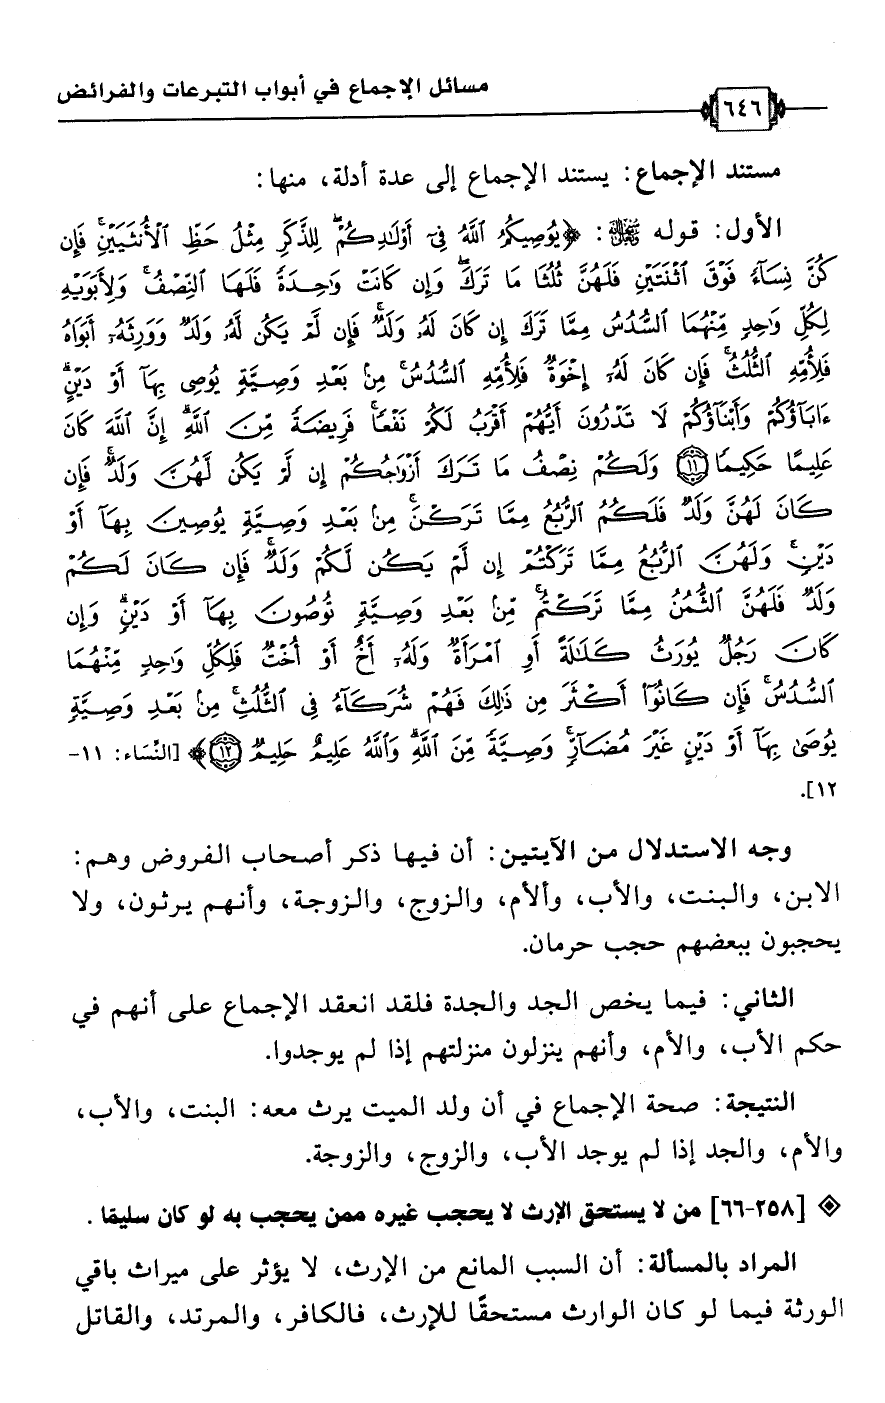 مسائل الإجماع في أبواب التبرعات والفرائض
٦٤٦
مستند الإجماع: يستند الإجماع إلى عدة أدلة، منها:
الأول: قوله تعالى: ﴿يُوصِيكُمُ ٱللَّهُ فِىٓ أَوْلَٰدِكُمْ ۖ لِلذَّكَرِ مِثْلُ حَظِّ ٱلْأُنثَيَيْنِ ۚ فَإِن
كُنَّ نِسَآءً فَوْقَ ٱثْنَتَيْنِ فَلَهُنَّ ثُلُثَا مَا تَرَكَ ۖ وَإِن كَانَتْ وَٰحِدَةً فَلَهَا ٱلنِّصْفُ ۚ وَلِأَبَوَيْهِ
لِكُلِّ وَٰحِدٍ مِّنْهُمَا ٱلسُّدُسُ مِمَّا تَرَكَ إِن كَانَ لَهُۥ وَلَدٌ ۚ فَإِن لَّمْ يَكُن لَّهُۥ وَلَدٌ وَوَرِثَهُۥٓ أَبَوَاهُ
فَلِأُمِّهِ ٱلثُّلُثُ ۚ فَإِن كَانَ لَهُۥٓ إِخْوَةٌ فَلِأُمِّهِ ٱلسُّدُسُ ۚ مِنۢ بَعْدِ وَصِيَّةٍ يُوصِى بِهَآ أَوْ دَيْنٍ ۗ
ءَابَآؤُكُمْ وَأَبْنَآؤُكُمْ لَا تَدْرُونَ أَيُّهُمْ أَقْرَبُ لَكُمْ نَفْعًا ۚ فَرِيضَةً مِّنَ ٱللَّهِ ۗ إِنَّ ٱللَّهَ كَانَ
عَلِيمًا حَكِيمًا ١١ وَلَكُمْ نِصْفُ مَا تَرَكَ أَزْوَٰجُكُمْ إِن لَّمْ يَكُن لَّهُنَّ وَلَدٌ ۚ فَإِن
كَانَ لَهُنَّ وَلَدٌ فَلَكُمُ ٱلرُّبُعُ مِمَّا تَرَكْنَ ۚ مِنۢ بَعْدِ وَصِيَّةٍ يُوصِينَ بِهَآ أَوْ
دَيْنٍ ۚ وَلَهُنَّ ٱلرُّبُعُ مِمَّا تَرَكْتُمْ إِن لَّمْ يَكُن لَّكُمْ وَلَدٌ ۚ فَإِن كَانَ لَكُمْ
وَلَدٌ فَلَهُنَّ ٱلثُّمُنُ مِمَّا تَرَكْتُم ۚ مِّنۢ بَعْدِ وَصِيَّةٍ تُوصُونَ بِهَآ أَوْ دَيْنٍ ۗ وَإِن
كَانَ رَجُلٌ يُورَثُ كَلَٰلَةً أَوِ ٱمْرَأَةٌ وَلَهُۥٓ أَخٌ أَوْ أُخْتٌ فَلِكُلِّ وَٰحِدٍ مِّنْهُمَا
ٱلسُّدُسُ ۚ فَإِن كَانُوٓا۟ أَكْثَرَ مِن ذَٰلِكَ فَهُمْ شُرَكَآءُ فِى ٱلثُّلُثِ ۚ مِنۢ بَعْدِ وَصِيَّةٍ
يُوصَىٰ بِهَآ أَوْ دَيْنٍ غَيْرَ مُضَآرٍّ ۚ وَصِيَّةً مِّنَ ٱللَّهِ ۗ وَٱللَّهُ عَلِيمٌ حَلِيمٌ ١٢﴾ [النِّسَاء: ١١-
١٢].
وجه الاستدلال من الآيتين: أن فيها ذكر أصحاب الفروض وهم:
الابن، والبنت، والأب، وألأم، والزوج، والزوجة، وأنهم يرثون، ولا
يحجبون ببعضهم حجب حرمان.
الثاني: فيما يخص الجد والجدة فلقد انعقد الإجماع على أنهم في
حكم الأب، والأم، وأنهم ينزلون منزلتهم إذا لم يوجدوا.
النتيجة: صحة الإجماع في أن ولد الميت يرث معه: البنت، والأب،
والأم، والجد إذا لم يوجد الأب، والزوج، والزوجة.
[٢٥٨-٦٦] من لا يستحق الإرث لا يحجب غيره ممن يحجب به لو كان سليمًا.
المراد بالمسألة: أن السبب المانع من الإرث، لا يؤثر على ميراث باقي
الورثة فيما لو كان الوارث مستحقًا للإرث، فالكافر، والمرتد، والقاتل